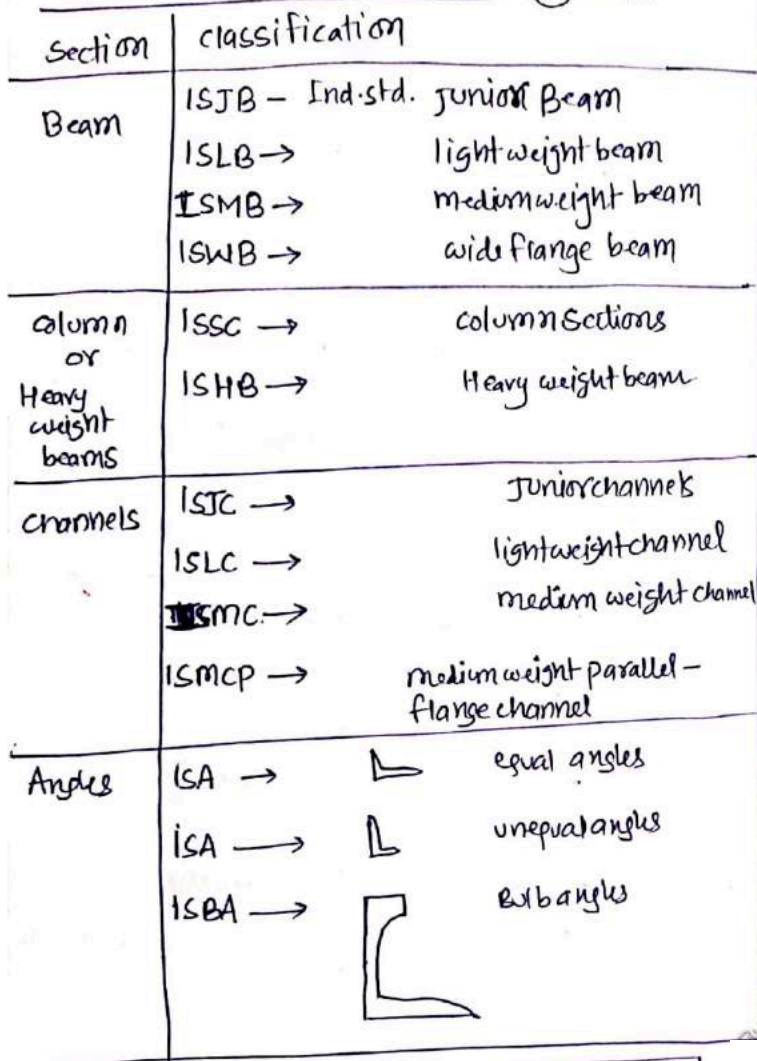 Section classification
Beam ISJB - Ind.std. Junior Beam
ISLB → lightweight beam
ISMB → mediumweight beam
ISWB → wide flange beam
column ISSC → column Sections
or
Heavy ISHB → Heavy weight beam
weight
beams
channels ISJC → Junior channels
ISLC → lightweight channel
ISMC → medium weight channel
ISMCP → medium weight parallel -
flange channel
Angles ISA → equal angles
ISA → unequal angles
ISBA → Bulb angles